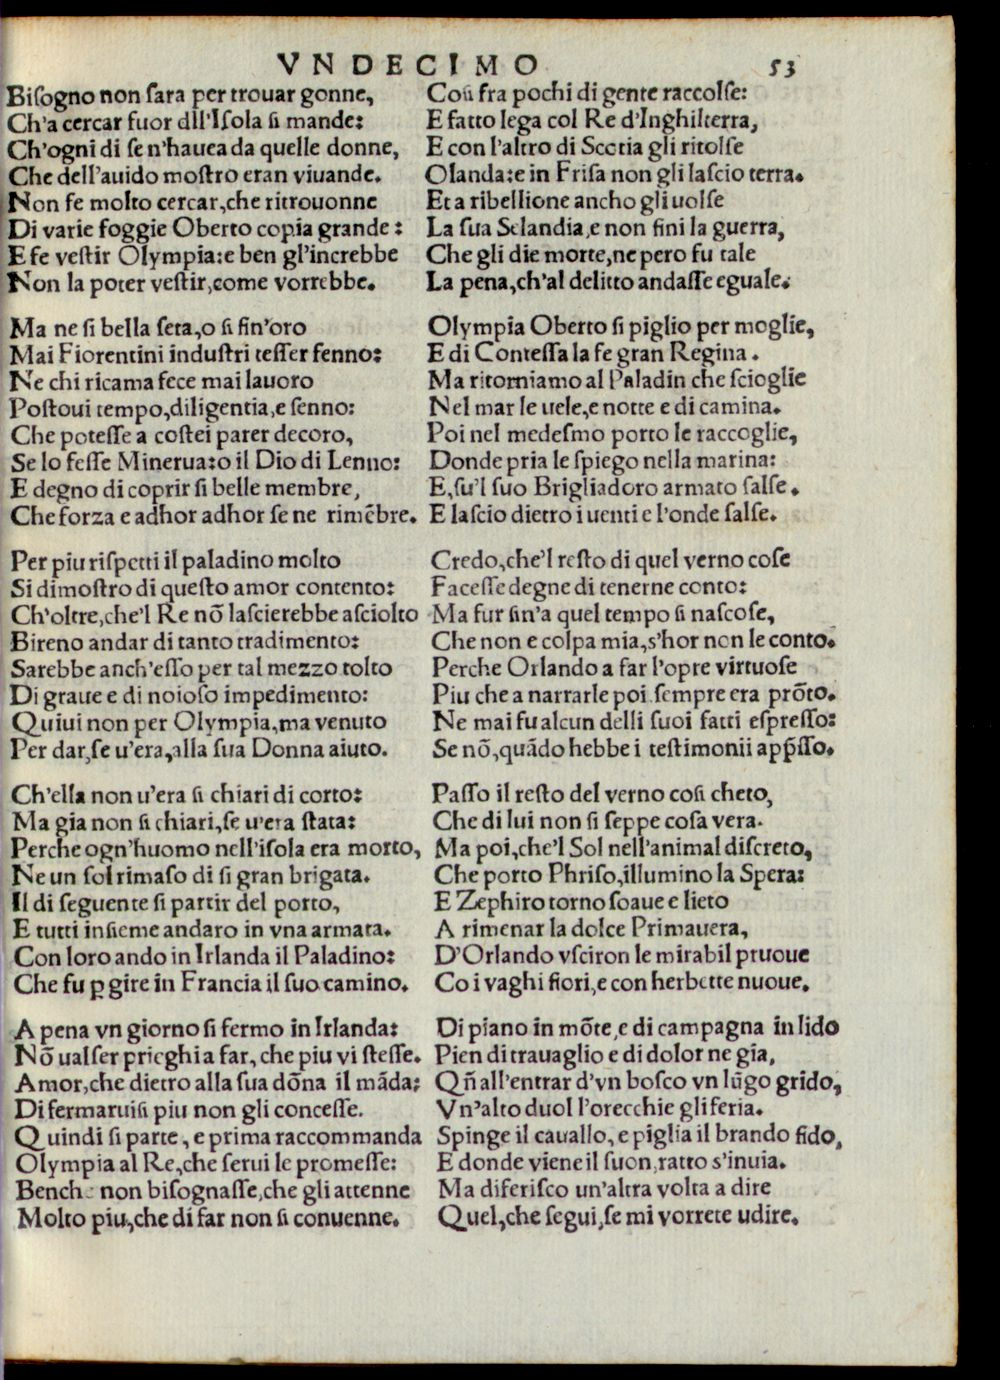 VNDECIMO 53
Bisogno non sara per trouar gonne,
Ch'a cercar fuor dll'Isola si mande:
Ch'ogni di se n'hauea da quelle donne,
Che dell'auido mostro eran viuande.
Non fe molto cercar, che ritrouonne
Di varie foggie Oberto copia grande:
E fe vestir Olympia: e ben gl'increbbe
Non la poter vestir, come vorrebbe.
Ma ne si bella seta, o si fin'oro
Mai Fiorentini industri tesser fenno:
Ne chi ricama fece mai lauoro
Postoui tempo, diligentia, e senno:
Che potesse a costei parer decoro,
Se lo fesse Minerua: o il Dio di Lenno:
E degno di coprir si belle membre,
Che forza e adhor adhor se ne rimẽbre.
Per piu rispetti il paladino molto
Si dimostro di questo amor contento:
Ch'oltre, che'l Re nõ lascierebbe asciolto
Bireno andar di tanto tradimento:
Sarebbe anch'esso per tal mezzo tolto
Di graue e di noioso impedimento:
Quiui non per Olympia, ma venuto
Per dar, se u'era, alla sua Donna aiuto.
Ch'ella non u'era si chiari di corto:
Ma gia non si chiari, se u'era stata:
Perche ogn'huomo nell'isola era morto,
Ne un sol rimaso di si gran brigata.
Il di seguente si partir del porto,
E tutti insieme andaro in vna armata.
Con loro ando in Irlanda il Paladino:
Che fu ꝑ gire in Francia il suo camino.
A pena vn giorno si fermo in Irlanda:
Nõ ualser prieghi a far, che piu vi stesse.
Amor, che dietro alla sua dõna il mãda;
Di fermaruisi piu non gli concesse.
Quindi si parte, e prima raccommanda
Olympia al Re, che serui le promesse:
Benche non bisognasse, che gli attenne
Molto piu, che di far non si conuenne.
Cosi fra pochi di gente raccolse:
E fatto lega col Re d'Inghilterra,
E con l'altro di Scotia gli ritolse
Olanda: e in Frisa non gli lascio terra.
Et a ribellione ancho gli uolse
La sua Selandia, e non fini la guerra,
Che gli die morte, ne pero fu tale
La pena, ch'al delitto andasse eguale.
Olympia Oberto si piglio per moglie,
E di Contessa la fe gran Regina.
Ma ritorniamo al Paladin che scioglie
Nel mar le uele, e notte e di camina.
Poi nel medesmo porto le raccoglie,
Donde pria le spiego nella marina:
E, su'l suo Brigliadoro armato salse.
E lascio dietro i uenti e l'onde salse.
Credo, che'l resto di quel verno cose
Facesse degne di tenerne conto:
Ma fur sin'a quel tempo si nascose,
Che non e colpa mia, s'hor non le conto.
Perche Orlando a far l'opre virtuose
Piu che a narrarle poi sempre era prõto.
Ne mai fu alcun delli suoi fatti espresso:
Se nõ, quãdo hebbe i testimonii app̃sso.
Passo il resto del verno cosi cheto,
Che di lui non si seppe cosa vera.
Ma poi, che'l Sol nell'animal discreto,
Che porto Phriso, illumino la Spera:
E Zephiro torno soaue e lieto
A rimenar la dolce Primauera,
D'Orlando vsciron le mirabil pruoue
Co i vaghi fiori, e con herbette nuoue.
Di piano in mõte, e di campagna in lido
Pien di trauaglio e di dolor ne gia,
Qñ all'entrar d'vn bosco vn lũgo grido,
Vn'alto duol l'orecchie gli feria.
Spinge il cauallo, e piglia il brando fido,
E donde viene il suon, ratto s'inuia.
Ma diferisco un'altra volta a dire
Quel, che segui, se mi vorrete udire.